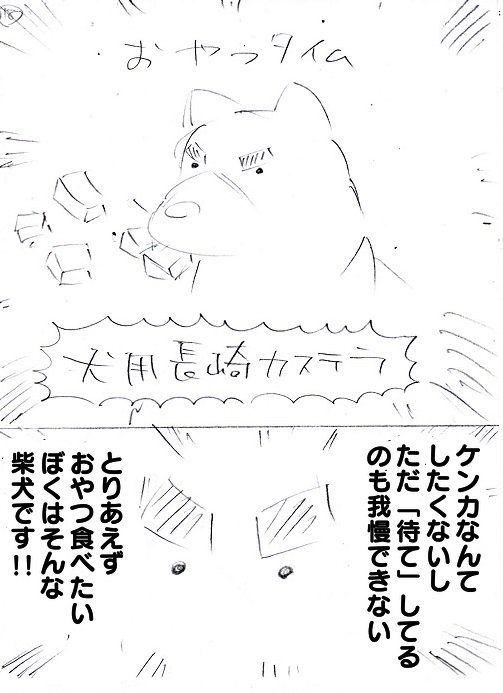 おやつタイム
犬用長崎カステラ
ケンカなんて
したくないし
ただ「待て」してる
のも我慢できない
とりあえず
おやつ食べたい
ぼくはそんな
柴犬です!!